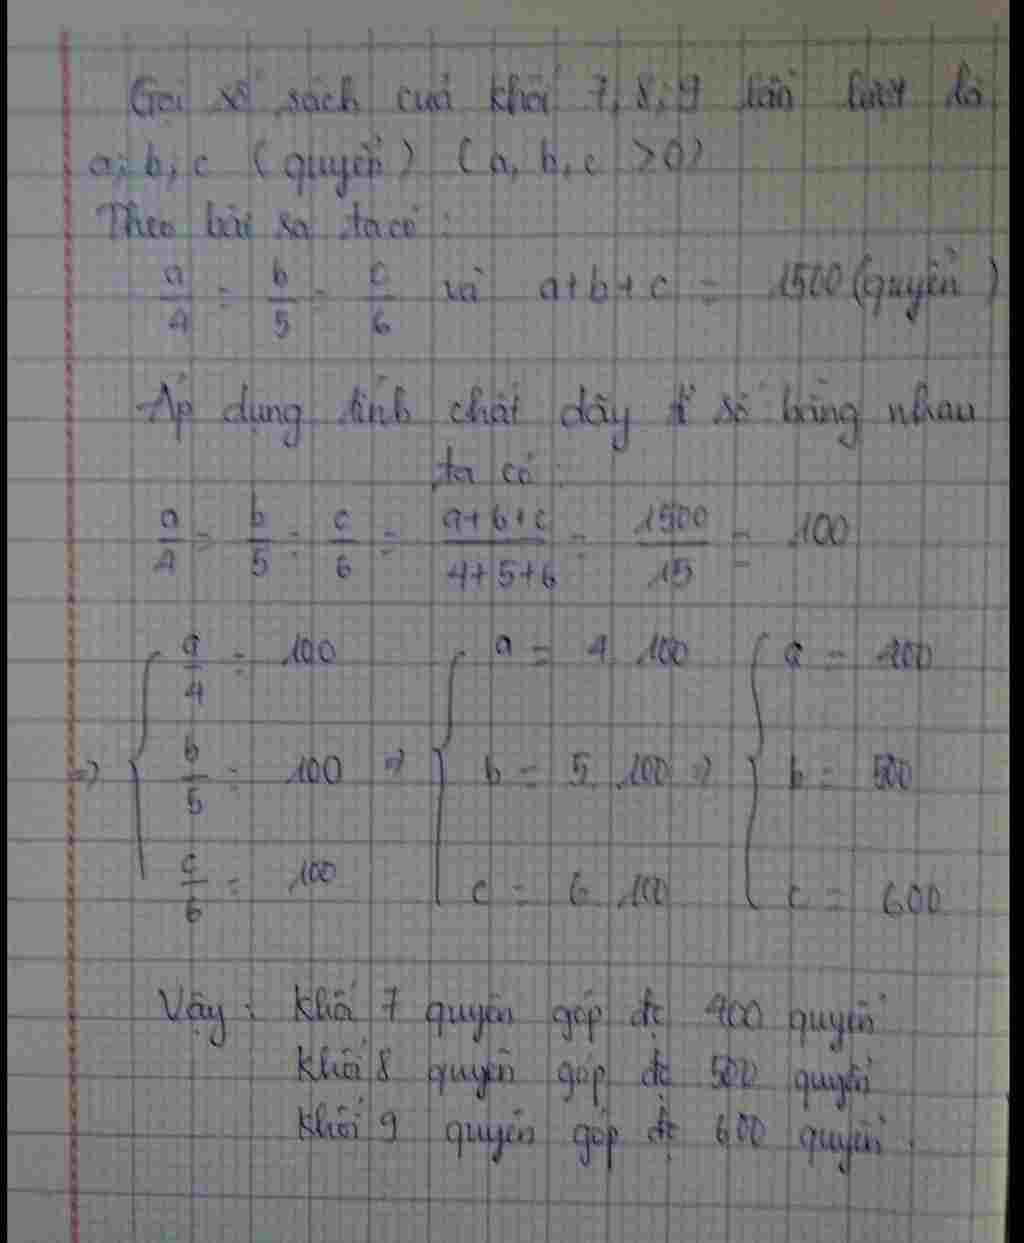 Gọi số sách của khối 7, 8, 9 lần lượt là
a, b, c (quyển) (a, b, c >0)
Theo bài ra ta có:
a/4 = b/5 = c/6 và a+b+c = 1500 (quyển)
Áp dụng tính chất dãy tỉ số bằng nhau
ta có:
a/4 = b/5 = c/6 = (a+b+c)/(4+5+6) = 1500/15 = 100
a/4 = 100 a = 4.100 a = 400
=> b/5 = 100 => b = 5.100 => b = 500
c/6 = 100 c = 6.100 c = 600
Vậy: Khối 7 quyên góp đc 400 quyển
Khối 8 quyên góp đc 500 quyển
Khối 9 quyên góp đc 600 quyển.